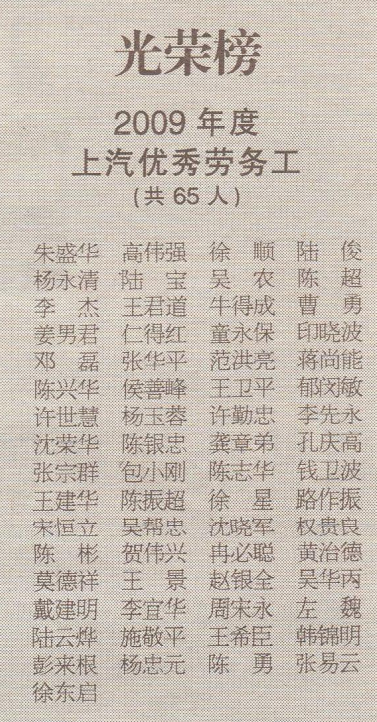 光荣榜
2009 年度
上汽优秀劳务工
(共 65 人)
朱盛华 高伟强 徐 顺 陆 俊
杨永清 陆 宝 吴 农 陈 超
李 杰 王君道 牛得成 曹 勇
姜男君 仁得红 童永保 印晓波
邓 磊 张华平 范洪亮 蒋尚能
陈兴华 侯善峰 王卫平 郁闵敏
许世慧 杨玉蓉 许勤忠 李先永
沈荣华 陈银忠 龚章弟 孔庆高
张宗群 包小刚 陈志华 钱卫波
王建华 陈振超 徐 星 路作振
宋恒立 吴帮忠 沈晓军 权贵良
陈 彬 贺伟兴 冉必聪 黄治德
莫德祥 王 景 赵银全 吴华丙
戴建明 李宜华 周宋永 左 魏
陆云烨 施敬平 王希臣 韩锦明
彭来根 杨忠元 陈 勇 张易云
徐东启